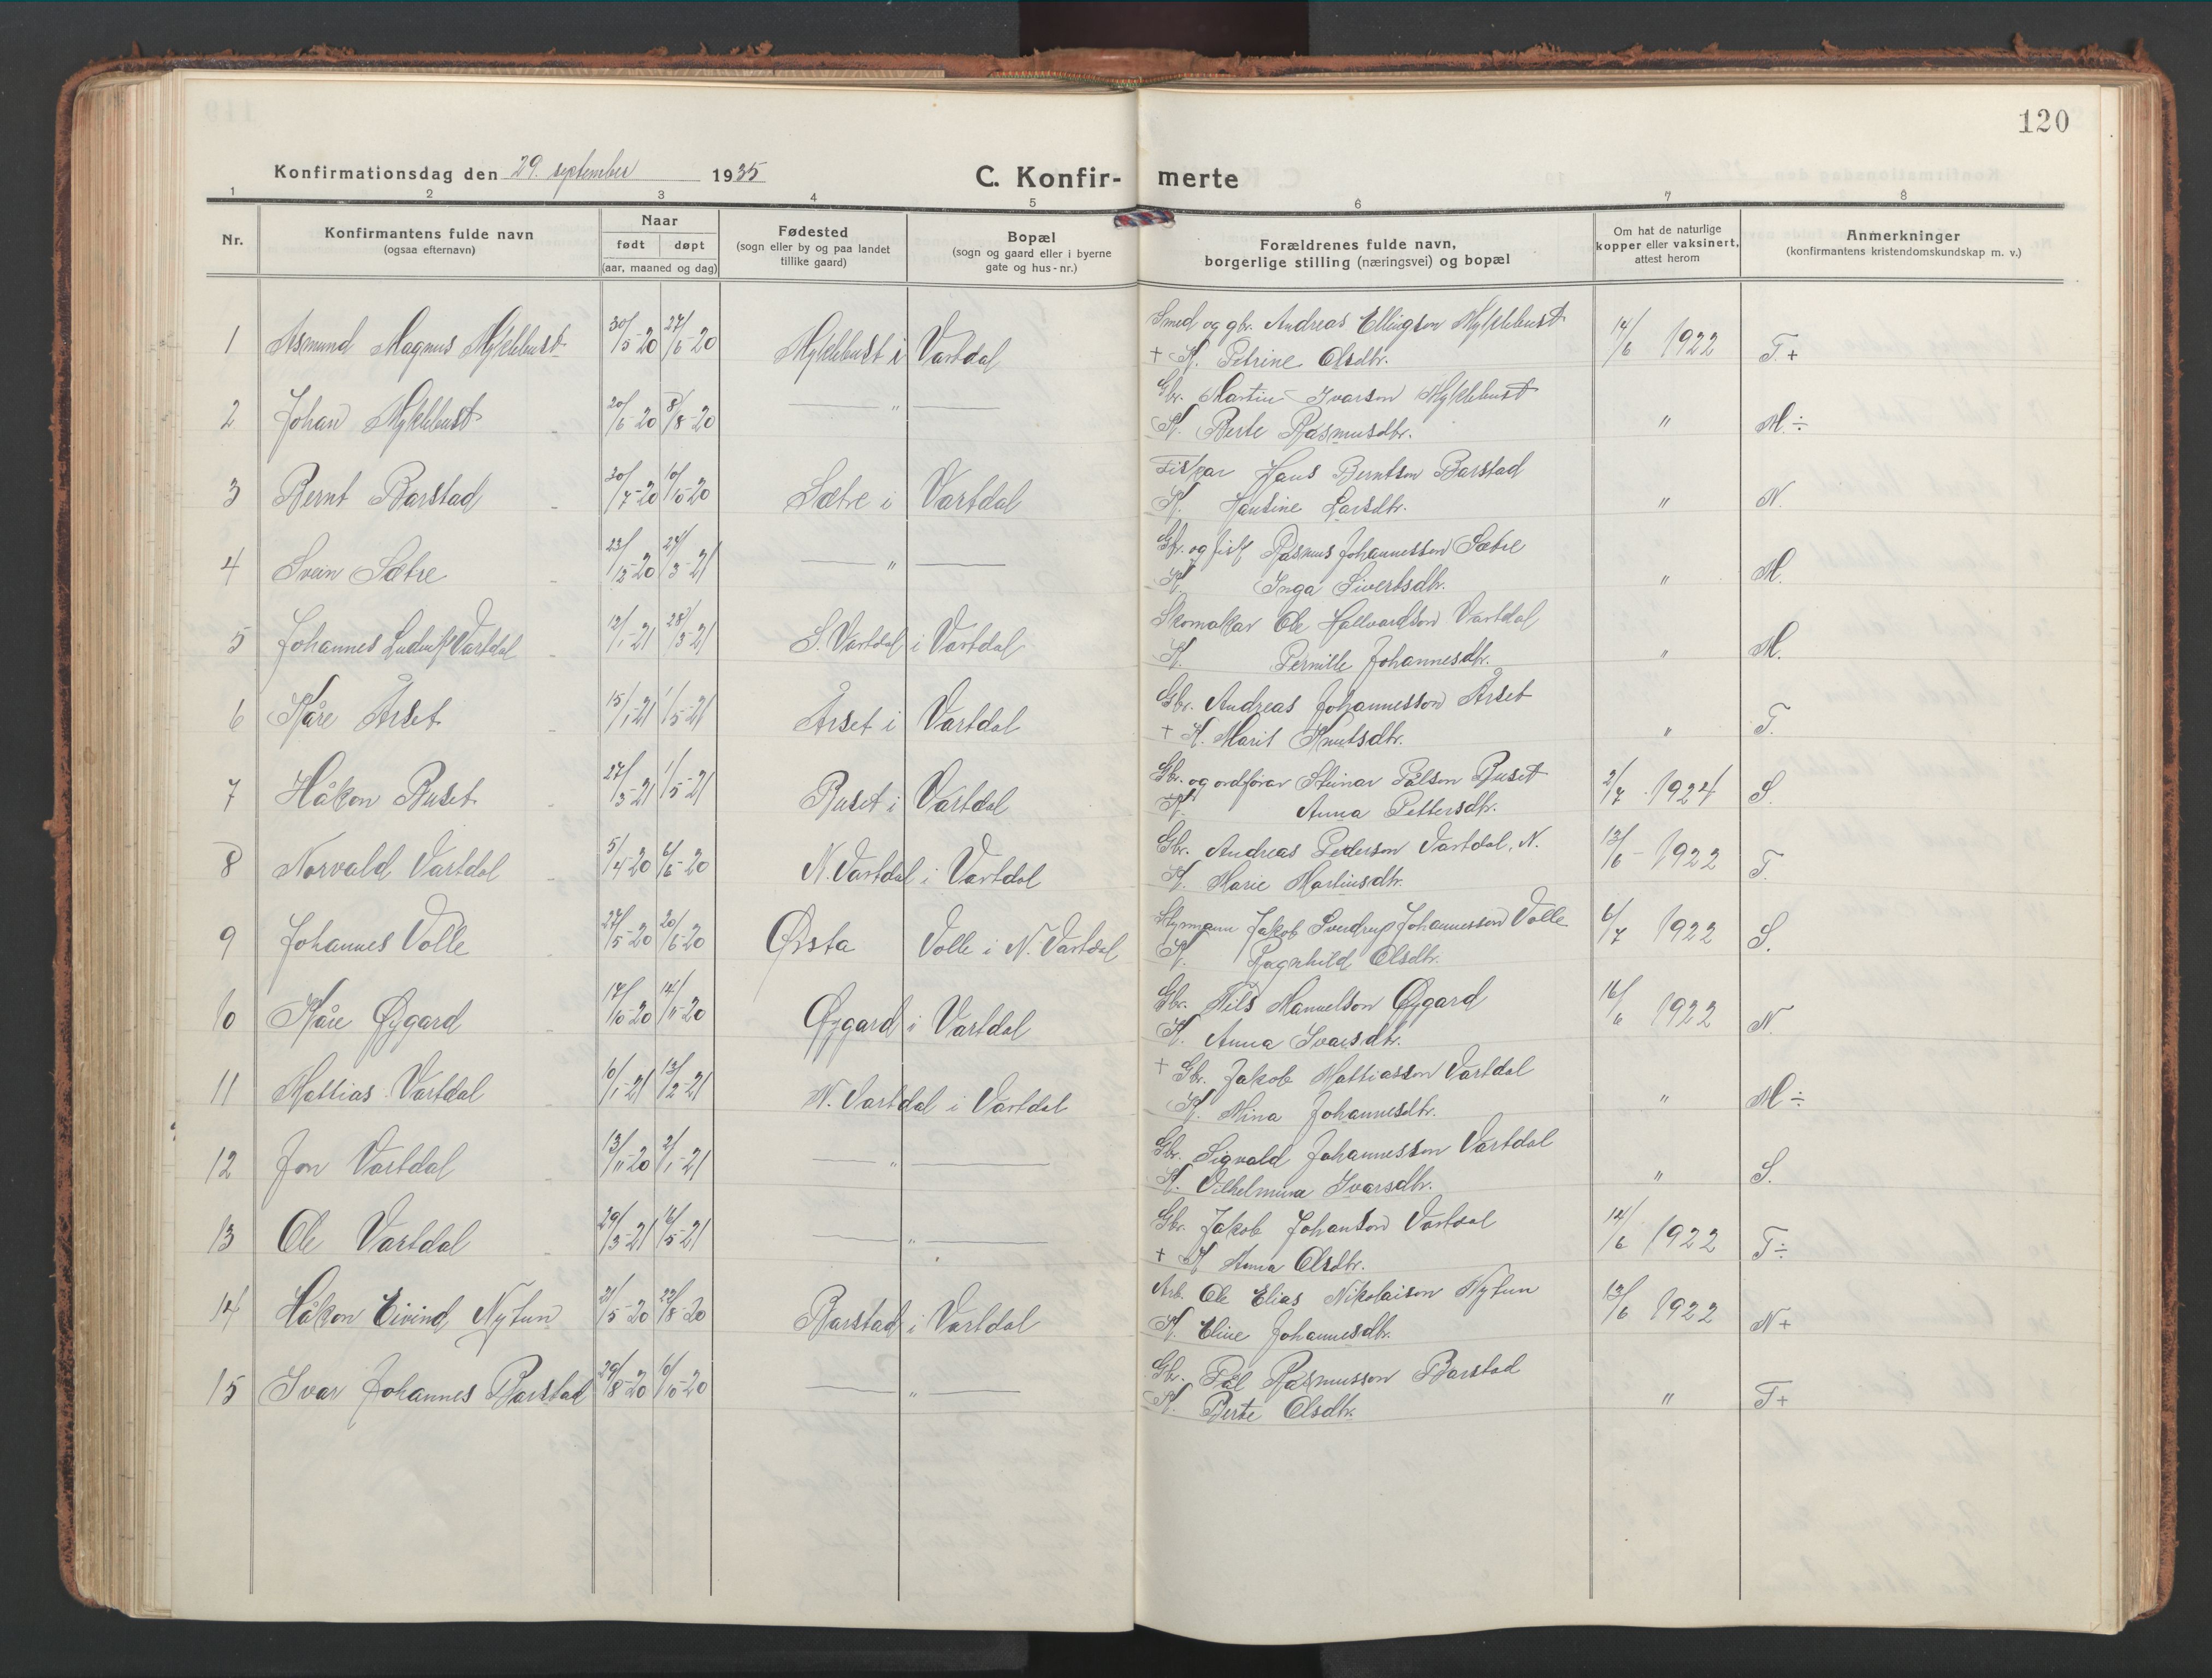 120
Konfirmationsdag den 29. september 1935
C. Konfir- merte
1 2 3 4 5 6 7 8
Nr.
Konfirmantens fulde navn
(ogsaa efternavn)
Naar
født døpt
(aar, maaned og dag)
Fødested
(sogn eller by og paa landet
tillike gaard)
Bopæl
(sogn og gaard eller i byerne
gate og hus-nr.)
Forældrenes fulde navn,
borgerlige stilling (næringsvei) og bopæl
Om hat de naturlige
kopper eller vaksinert,
attest herom
Anmerkninger
(konfirmantens kristendomskundskap m. v.)
1 Asmund Magnus Myklebust 30/5-20 27/6-20 Myklebust i Vartdal Smed og gbr. Andreas Ellingson Myklebust 14/6 1922 T.+
+ K. Petrine Olsdtr.
2 Johan Myklebust 20/6-20 8/8-20 — " — Gbr. Martin Ivarson Myklebust " M.÷
K. Berte Rasmusdtr.
3 Bernt Barstad 30/7-20 10/10-20 Sætre i Vartdal Fiskar Hans Berntson Barstad " N.
K. Hansine Larsdtr.
4 Svein Sætre 23/12-20 27/3-21 — " — Gbr. og fisk Rasmus Johannesson Sætre " M.
K. Inga Sivertsdtr.
5 Johannes Vartdal 12/1-21 28/3-21 S. Vartdal i Vartdal Skomakar Ole Hallvardson Vartdal " M.
K. Pernille Johannesdtr.
6 Kåre Årset 15/1-21 1/5-21 Årset i Vartdal Gbr. Andreas Johannesson Årset " T.
+ K. Marit Knutsdtr.
7 Håkon Buset 27/3-21 1/5-21 Buset i Vartdal Gbr. og ordførar Steinar Pålson Buset 2/7 1924 S.
K. Anna Pettersdtr.
8 Norvald Vartdal 5/4-20 6/6-20 N. Vartdal i Vartdal Gbr. Andreas Pederson Vartdal, N. 13/6-1922 T.
K. Marie Martinsdtr.
9 Johannes Volle 27/5-20 20/6-20 Ørsta Volle i N. Vartdal Styrmann Jakob Sverdrup Johannesson Volle 6/7 1922 S.
K. Ragnhild Olsdtr.
10 Kåre Øygard 17/10-20 14/11-20 Øygard i Vartdal Gbr. Nils Manuelson Øygard 16/6 1922 N.
K. Anna Ivarsdtr.
11 Mattias Vartdal 10/1-21 13/2-21 N. Vartdal i Vartdal + Gbr. Jakob Mattiasson Vartdal " M÷
K. Mina Johannesdtr.
12 Jon Vartdal 13/11-20 2/1-21 — " — Gbr. Sigvald Johannesson Vartdal " S.
K. Vilhelmina Ivarsdtr.
13 Ole Vartdal 29/3-21 16/5-21 — " — Gbr. Jakob Johanson Vartdal 14/6 1922 T÷
+ K Anna Olsdtr.
14 Håkon Eivind Nytun 21/5-20 22/8-20 Barstad i Vartdal Arb. Ole Elias Nikolaison Nytun 13/6 1922 N+
K. Eline Johannesdtr.
15 Ivar Johannes Barstad 29/8-20 10/10-20 — " — Gbr. Pål Rasmusson Barstad " T+
K. Berte Olsdtr.